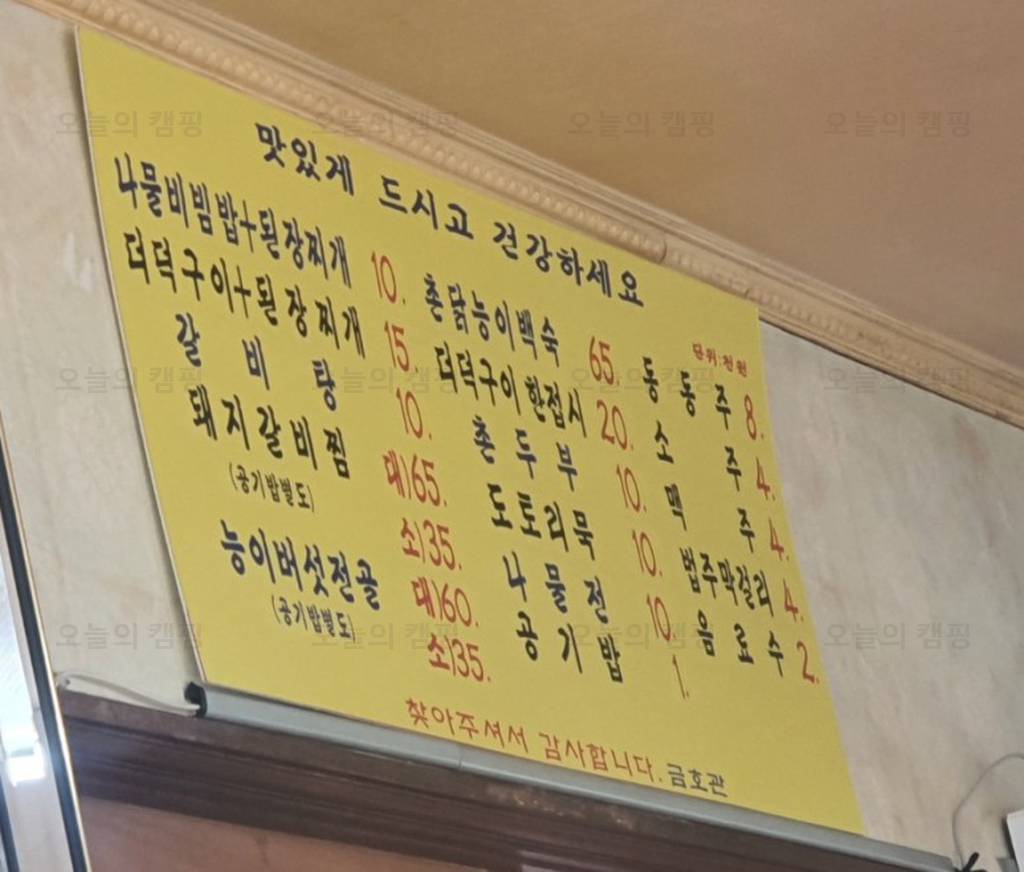 맛있게 드시고 건강하세요
단위:천원
나물비빔밥+된장찌개 10.
더덕구이+된장찌개 15.
갈비탕 10.
돼지갈비찜 대)65.
(공기밥별도) 소)35.
능이버섯전골 대)60.
(공기밥별도) 소)35.
촌닭능이백숙 65.
더덕구이 한접시 20.
촌두부 10.
도토리묵 10.
나물전 10.
공기밥 1.
동동주 8.
소주 4.
맥주 4.
법주막걸리 4.
음료수 2.
찾아주셔서 감사합니다. 금호관
오늘의 캠핑 오늘의 캠핑 오늘의 캠핑 오늘의 캠핑
오늘의 캠핑 오늘의 캠핑 오늘의 캠핑 오늘의 캠핑
오늘의 캠핑 오늘의 캠핑 오늘의 캠핑 오늘의 캠핑